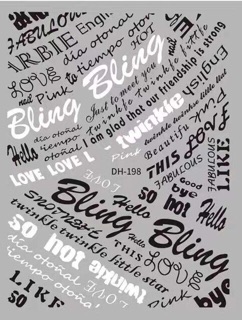 FABULOUS
ARBIE
Engli
día otoñal
tiempo
LOVE
HOT
Pink
Bling
Bling
Just to meet you
Twinkle twinkle
I am glad that our friendship is strong
English
Hello
twinkle
twinkle twinkle little
Beautiful
LOVE
LOVE LOVE L
Pink
THIS
FABULOUS
LIKE
DH-198
Hello
Bling
Hello
good
bye
so hot
Hello
twinkle twinkle little star
Bling
día otoñal
tiempo
so hot
twinkle
Hello
THIS
LOVE
día otoñal
tiempo otoñal
LOVE
LIKE
so
little star
Pink
bye